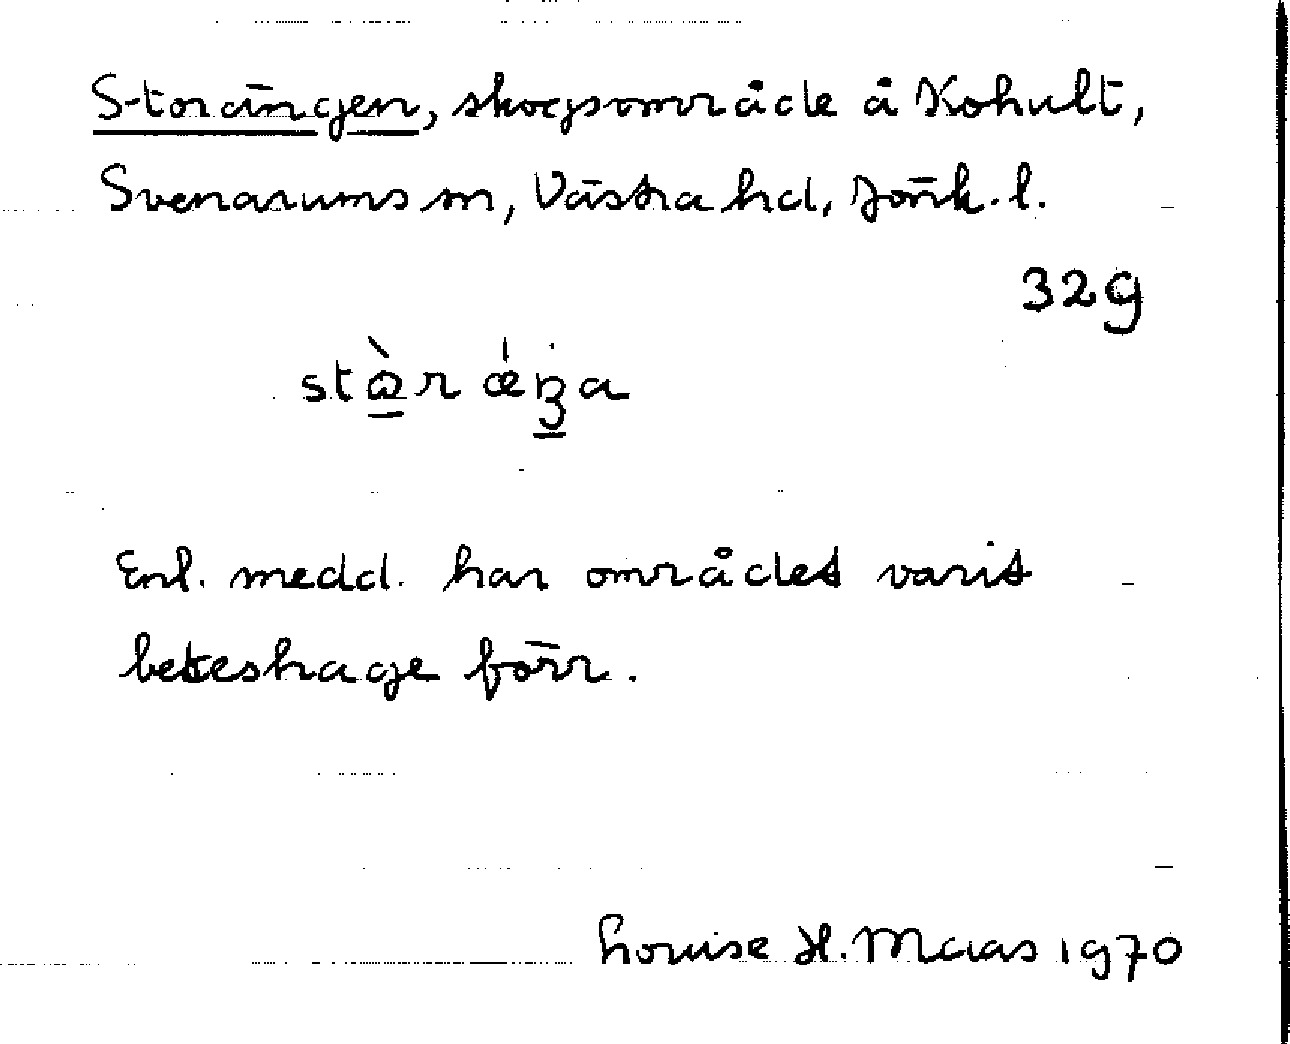 Storängen, skogsområde å Kohult,
Svenarums sn, Västra hd, Jönk. l.
32g
Enl. medd. har området varit
beteshage förr.
Louise H. Maas 1970